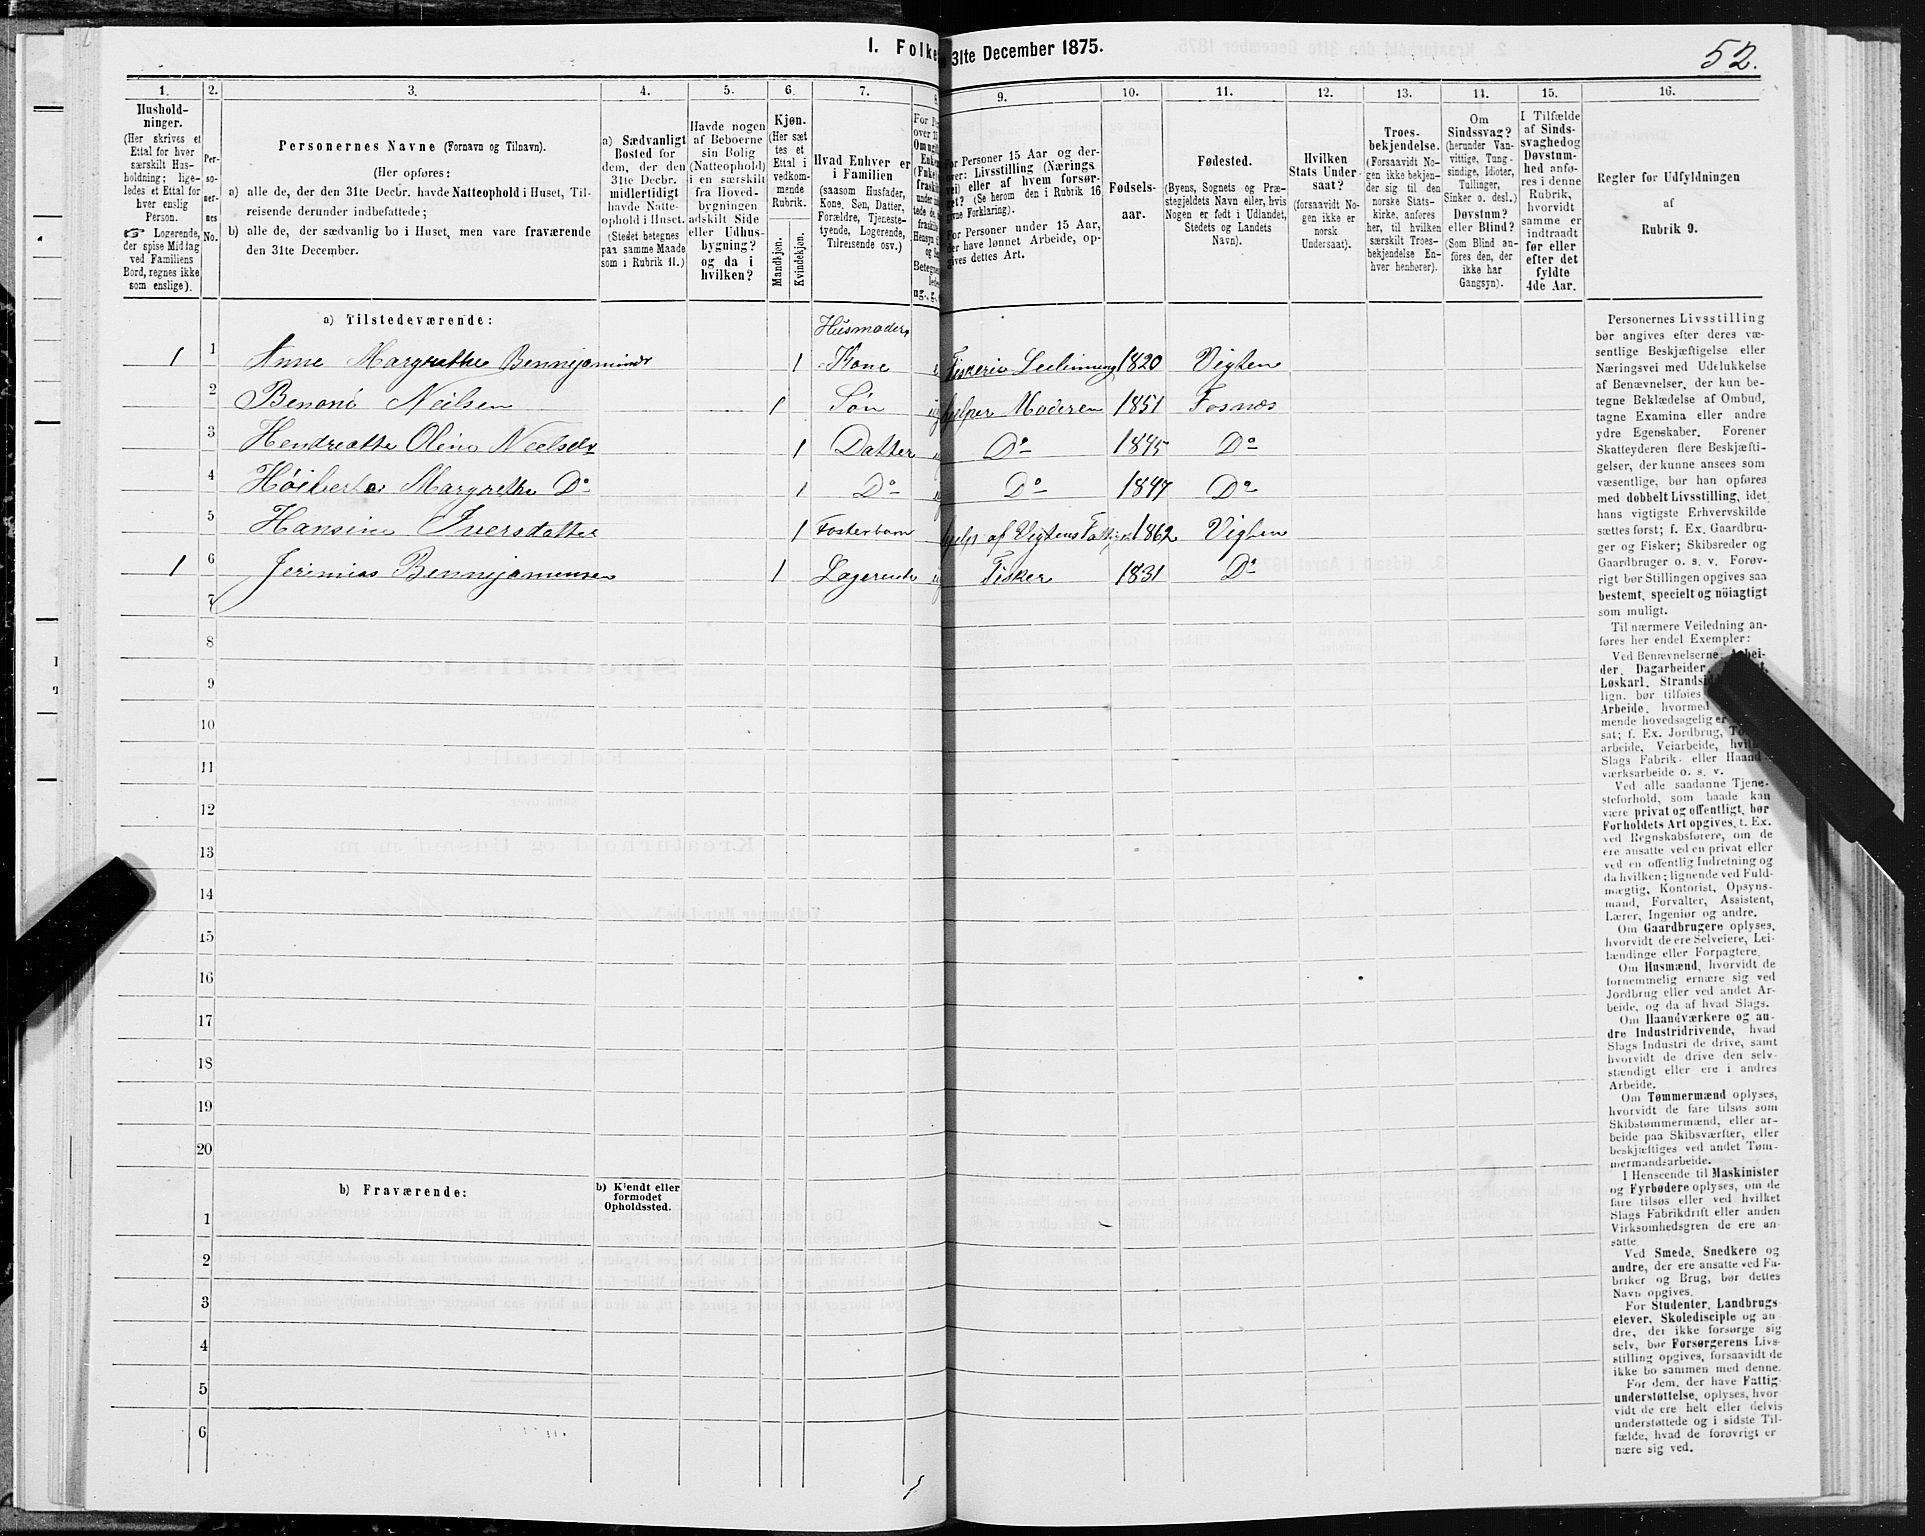 I. Folke
n 31te December 1875.
52.
1.
Hushold-
ninger.
(Her skrives et
Ettal for hver
særskilt Hus-
holdning; lige-
ledes et Ettal for
hver enslig
Person.
☞ Logerende,
der spise Middag
ved Familiens
Bord, regnes ikke
som enslige).
2.
Per-
so-
ner-
nes
No.
3.
Personernes Navne (Fornavn og Tilnavn).
(Her opføres:
a) alle de, der den 31te Decbr. havde Natteophold i Huset, Til-
reisende derunder indbefattede;
b) alle de, der sædvanlig bo i Huset, men vare fraværende
den 31te December.
4.
a) Sædvanligt
Bosted for
dem, der den
31te Decbr.
midlertidigt
havde Natte-
ophold i Huset.
(Stedet betegnes
paa samme Maade
som i Rubrik 11.)
5.
Havde nogen
af Beboerne
sin Bolig
(Natteophold)
i en særskilt
fra Hoved-
bygningen
adskilt Side
eller Udhus-
bygning?
og da i
hvilken?
6.
Kjøn.
(Her sæt-
tes et
Ettal i
vedkom-
mende
Rubrik.
Mandkjøn.
Kvindekjøn.
7.
Hvad Enhver er
i Familien
(saasom Husfader,
Kone, Søn, Datter,
Forældre, Tjeneste-
tyende, Logerende,
Tilreisende osv.)
8.
9.
For Personer 15 Aar og der-
over: Livsstilling (Nærings-
vei) eller af hvem forsør-
get? (Se herom den i Rubrik 16
givne Forklaring).
For Personer under 15 Aar,
der have lønnet Arbeide, op-
gives dettes Art.
10.
Fødsels-
aar.
11.
Fødested.
(Byens, Sognets og Præ-
stegjeldets Navn eller, hvis
Nogen er født i Udlandet,
Stedets og Landets
Navn).
12.
Hvilken
Stats Under-
saat?
(forsaavidt No-
gen ikke er
norsk
Undersaat).
13.
Troes-
bekjendelse.
(Forsaavidt No-
gen ikke bekjen-
der sig til den
norske Stats-
kirke, anføres
her, til hvilken
særskilt Troes-
bekjendelse En-
hver henhører).
14.
Om
Sindssvag?
(herunder Van-
vittige, Tung-
sindige, Idioter,
Tullinger,
Sinker o. desl.)
Døvstum?
eller Blind?
(Som Blind an-
føres den, der
ikke har
Gangsyn).
15.
I Tilfælde
af Sinds-
svaghed og
Døvstum-
hed anfø-
res i denne
Rubrik,
hvorvidt
samme er
indtraadt
før eller
efter det
fyldte
4de Aar.
16.
Regler for Udfyldningen
af
Rubrik 9.
a) Tilstedeværende:
Husmoder
1 1 Anne Margrethe Bennejamindr 1 Kone Fiskerie 1820 Vigten
2 Benone Neilsen 1 Søn ug hjelper Moderen 1851 Fosnæs
3 Hendreatte Oline Neelsdr 1 Datter Do 1845 Do
4 Margrethe Do 1 Do Do 1847 Do
5 Hansine Iversdatter 1 Fosterbarn af Vigtens 1862 Vigten
1 6 Jerimias Bennejamensen 1 Logerende ug Fisker 1831 Do
7
8
9
10
11
12
13
14
15
16
17
18
19
20
b) Fraværende:
b) Kjendt eller
formodet
Opholdssted.
1
2
3
4
5
6
Personernes Livsstilling
bør angives efter deres væ-
sentlige Beskjæftigelse eller
Næringsvei med Udelukkelse
af Benævnelser, der kun be-
tegne Beklædelse af Ombud,
tagne Examina eller andre
ydre Egenskaber. Forener
Skatteyderen flere Beskjæfti-
gelser, der kunne ansees som
væsentlige, bør han opføres
med dobbelt Livsstilling, idet
hans vigtigste Erhvervskilde
sættes først; f. Ex. Gaardbru-
ger og Fisker; Skibsreder og
Gaardbruger o. s. v. Forøv-
rigt bør Stillingen opgives saa
bestemt, specielt og nöiagtigt
som muligt.
Til nærmere Veiledning an-
føres her endel Exempler:
Ved Benævnelserne: Arbei-
der, Dagarbeider,
Løskarl, Strandsid
lign. bør tilføies
Arbeide, hvormed
mende hovedsagelig er
sat; f. Ex. Jordbrug,
arbeide, Veiarbeide, hvilke
Slags Fabrik- eller Haand-
værksarbeide o. s. v.
Ved alle saadanne Tjene-
steforhold, som baade kan
være privat og offentligt, bør
Forholdets Art opgives, t. Ex.
ved Regnskabsførere, om de
ere ansatte ved en privat eller
ved en offentlig Indretning og
da hvilken; lignende ved Fuld-
mægtig, Kontorist, Opsyns-
mand, Forvalter, Assistent,
Lærer, Ingeniør og andre.
Om Gaardbrugere oplyses,
hvorvidt de ere Selveiere, Lei-
lændinge eller Forpagtere.
Om Husmænd, hvorvidt de
fornemmelig ernære sig ved
Jordbrug eller ved andet Ar-
beide, og da af hvad Slags.
Om Haandværkere og an-
dre Industridrivende, hvad
Slags Industri de drive, samt
hvorvidt de drive den selv-
stændigt eller ere i andres
Arbeide.
Om Tømmermænd oplyses,
hvorvidt de fare tilsøs som
Skibstømmermænd, eller ar-
beide paa Skibsværfter, eller
beskjæftiges ved andet Tøm-
mermandsarbeide.
I Henseende til Maskinister
og Fyrbødere oplyses, om de
fare tilsøs eller ved hvilket
Slags Fabrikdrift eller anden
Virksomhedsgren de ere an-
satte.
Ved Smede, Snedkere og
andre, der ere ansatte ved Fa-
briker og Brug, bør dettes
Navn opgives.
For Studenter, Landbrugs-
elever, Skoledisciple og an-
dre, der ikke forsørge sig
selv, bør Forsørgerens Livs-
stilling opgives, forsaavidt de
ikke bo sammen med denne.
For dem, der have Fattig-
understøttelse, oplyses, hvor-
vidt de ere helt eller delvis
understøttede og i sidste Til-
fælde, hvad de forøvrigt er-
nære sig ved.